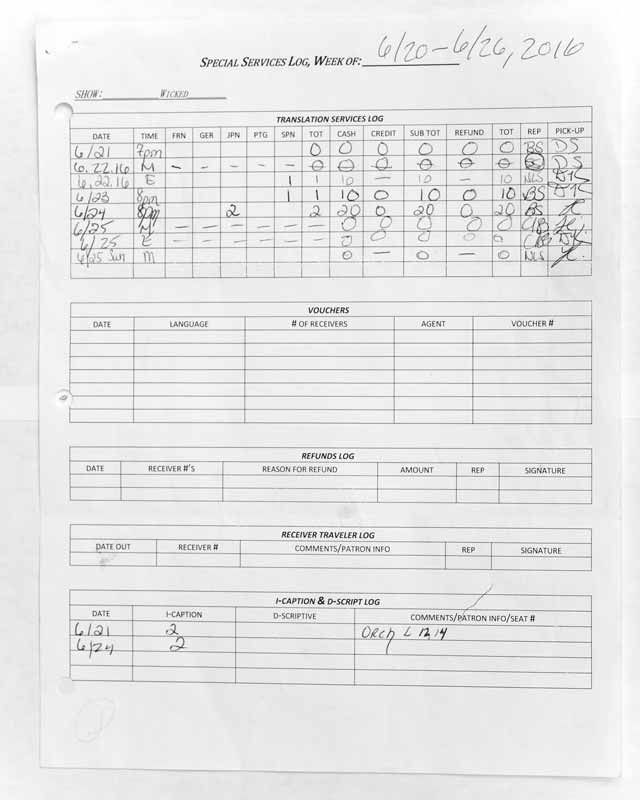 SPECIAL SERVICES LOG, WEEK OF: 6/20-6/26, 2016
SHOW: WICKED
TRANSLATION SERVICES LOG
DATE TIME FRN GER JPN PTG SPN TOT CASH CREDIT SUB TOT REFUND TOT REP PICK-UP
6/21 7pm 0 0 0 0 0 0 BS DS
6.22.16 M - - - - - 0 0 0 0 0 0 DS
6.22.16 E 1 1 10 — 10 — 10 NLS
6/23 8pm 1 1 10 0 10 0 10 BS
6/24 8pm 2 2 20 0 20 0 20 BS
6/25 M - - - - - - 0 0 0 0 0
6/25 E - - - - - - 0 0 0 0 0
6/25 Sun M 0 — 0 — 0 NLS
VOUCHERS
DATE LANGUAGE # OF RECEIVERS AGENT VOUCHER #
REFUNDS LOG
DATE RECEIVER #'S REASON FOR REFUND AMOUNT REP SIGNATURE
RECEIVER TRAVELER LOG
DATE OUT RECEIVER # COMMENTS/PATRON INFO REP SIGNATURE
I-CAPTION & D-SCRIPT LOG
DATE I-CAPTION D-SCRIPTIVE COMMENTS/PATRON INFO/SEAT #
6/21 2 Orch L 12, 14
6/24 2